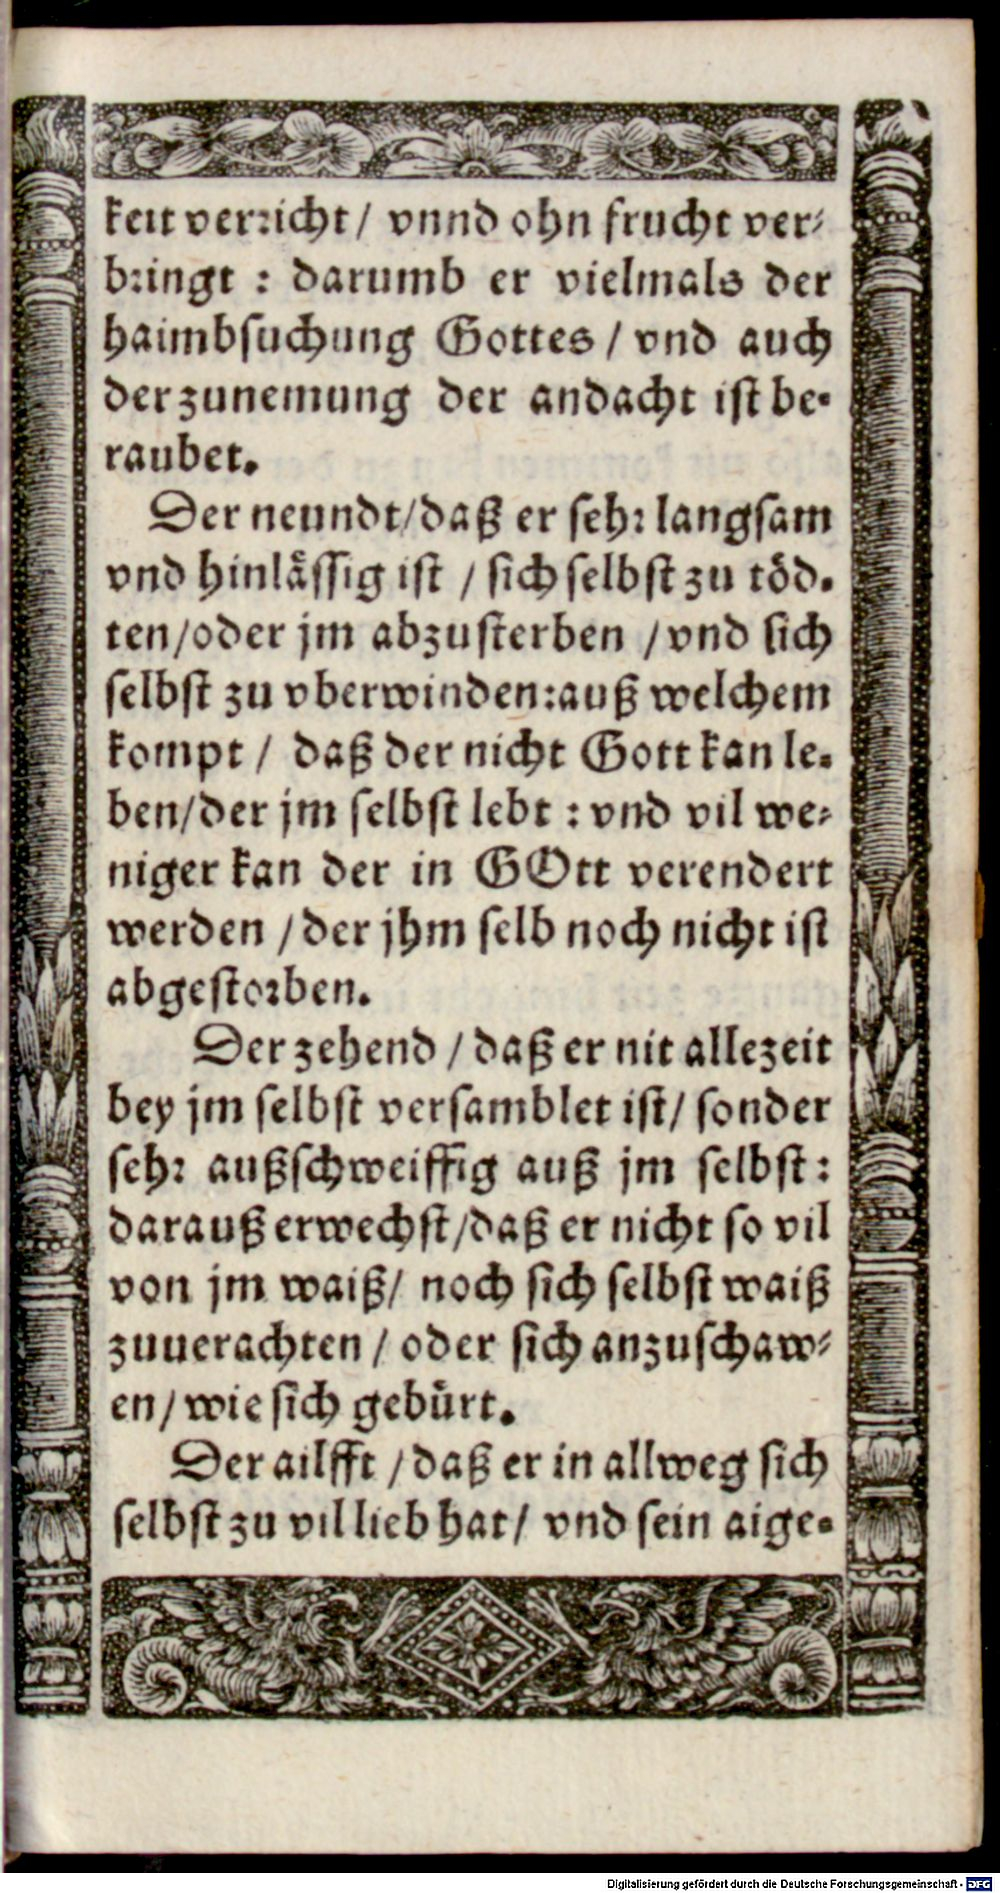 keit verricht / vnnd ohn frucht ver⸗
bringt : darumb er vielmals der
haimbsuchung Gottes / vnd auch
der zunemung der andacht ist be⸗
raubet.
Der neundt / daß er sehr langsam
vnd hinlässig ist / sich selbst zu töd⸗
ten / oder jm abzusterben / vnd sich
selbst zu vberwinden : auß welchem
kompt / daß der nicht Gott kan le⸗
ben / der jm selbst lebt : vnd vil we⸗
niger kan der in GOtt verendert
werden / der jhm selb noch nicht ist
abgestorben.
Der zehend / daß er nit allezeit
bey jm selbst versamblet ist / sonder
sehr außschweiffig auß jm selbst :
darauß erwechst / daß er nicht so vil
von jm waiß / noch sich selbst waiß
zuuerachten / oder sich anzuschaw⸗
en / wie sich gebürt.
Der ailfft / daß er in allweg sich
selbst zu vil lieb hat / vnd sein aige⸗
Digitalisierung gefördert durch die Deutsche Forschungsgemeinschaft - DFG